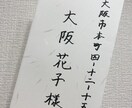 大阪市本町四-十二-十五
大阪花子様